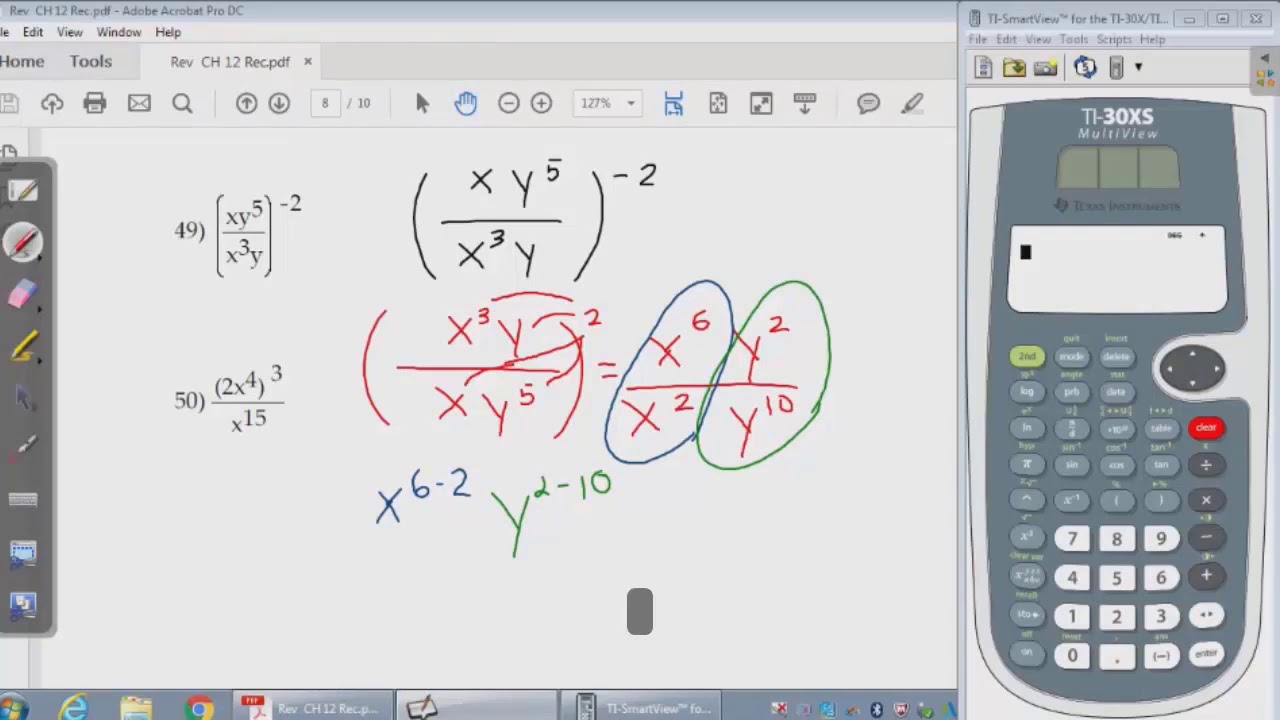 Rev CH 12 Rec.pdf - Adobe Acrobat Pro DC
le Edit View Window Help
Home Tools Rev CH 12 Rec.pdf ×
8 / 10 127%
49) (xy^5 / x^3y)^-2
(x y^5 / x^3 y)^-2
(x^3 y / x y^5)^2 = x^6 y^2 / x^2 y^10
50) (2x^4)^3 / x^15
x^6-2 y^2-10
TI-SmartView™ for the TI-30X/TI...
File Edit View Tools Scripts Help
TI-30XS
MultiView
TEXAS INSTRUMENTS
DEG
quit insert
2nd mode delete
angle stat
log prb data
ln n/d table clear
sin⁻¹ cos⁻¹ tan⁻¹
π sin cos tan ÷
^ x⁻¹ ( ) ×
x² 7 8 9 −
clear var
4 5 6 +
recall
sto▸ 1 2 3
off reset , ans
on 0 . (−) enter
Rev CH 12 Rec.p... TI-SmartView™ fo...